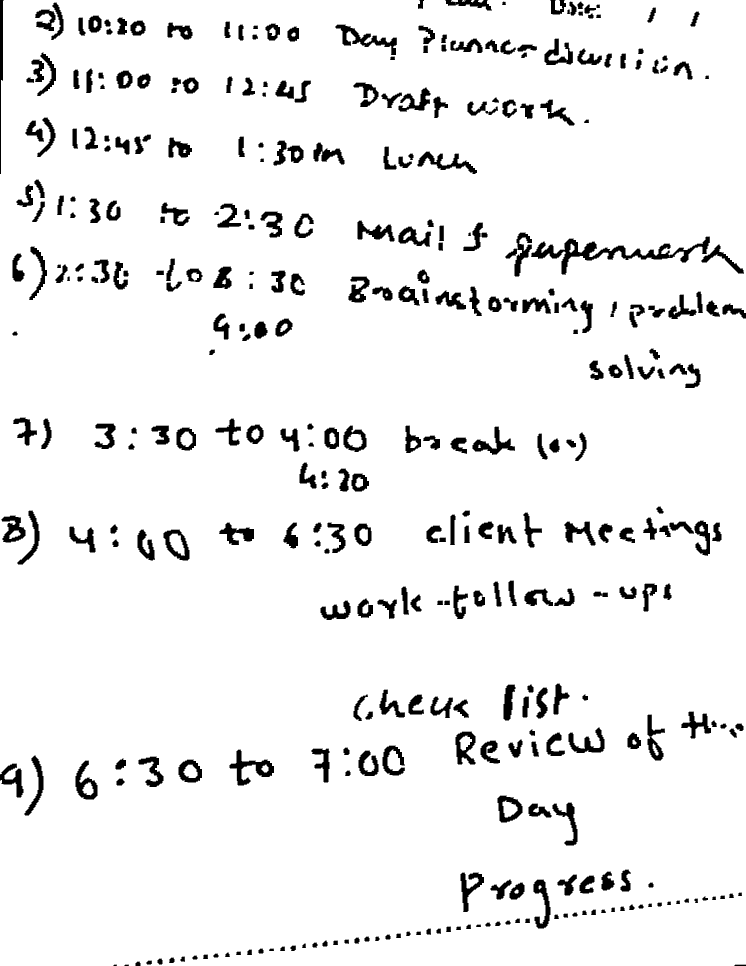 Date: / /
2) 10:30 to 11:00 Day Planner discussion.
3) 11:00 to 12:45 Draft work.
4) 12:45 to 1:30 Lunch
5) 1:30 to 2:30 Mail & paperwork
6) 2:30 to 3:30 Brainstorming, problem
4:00
solving
7) 3:30 to 4:00 break (or)
4:20
8) 4:00 to 6:30 client Meetings
work-follow-ups
Check list.
9) 6:30 to 7:00 Review of the
Day
Progress.